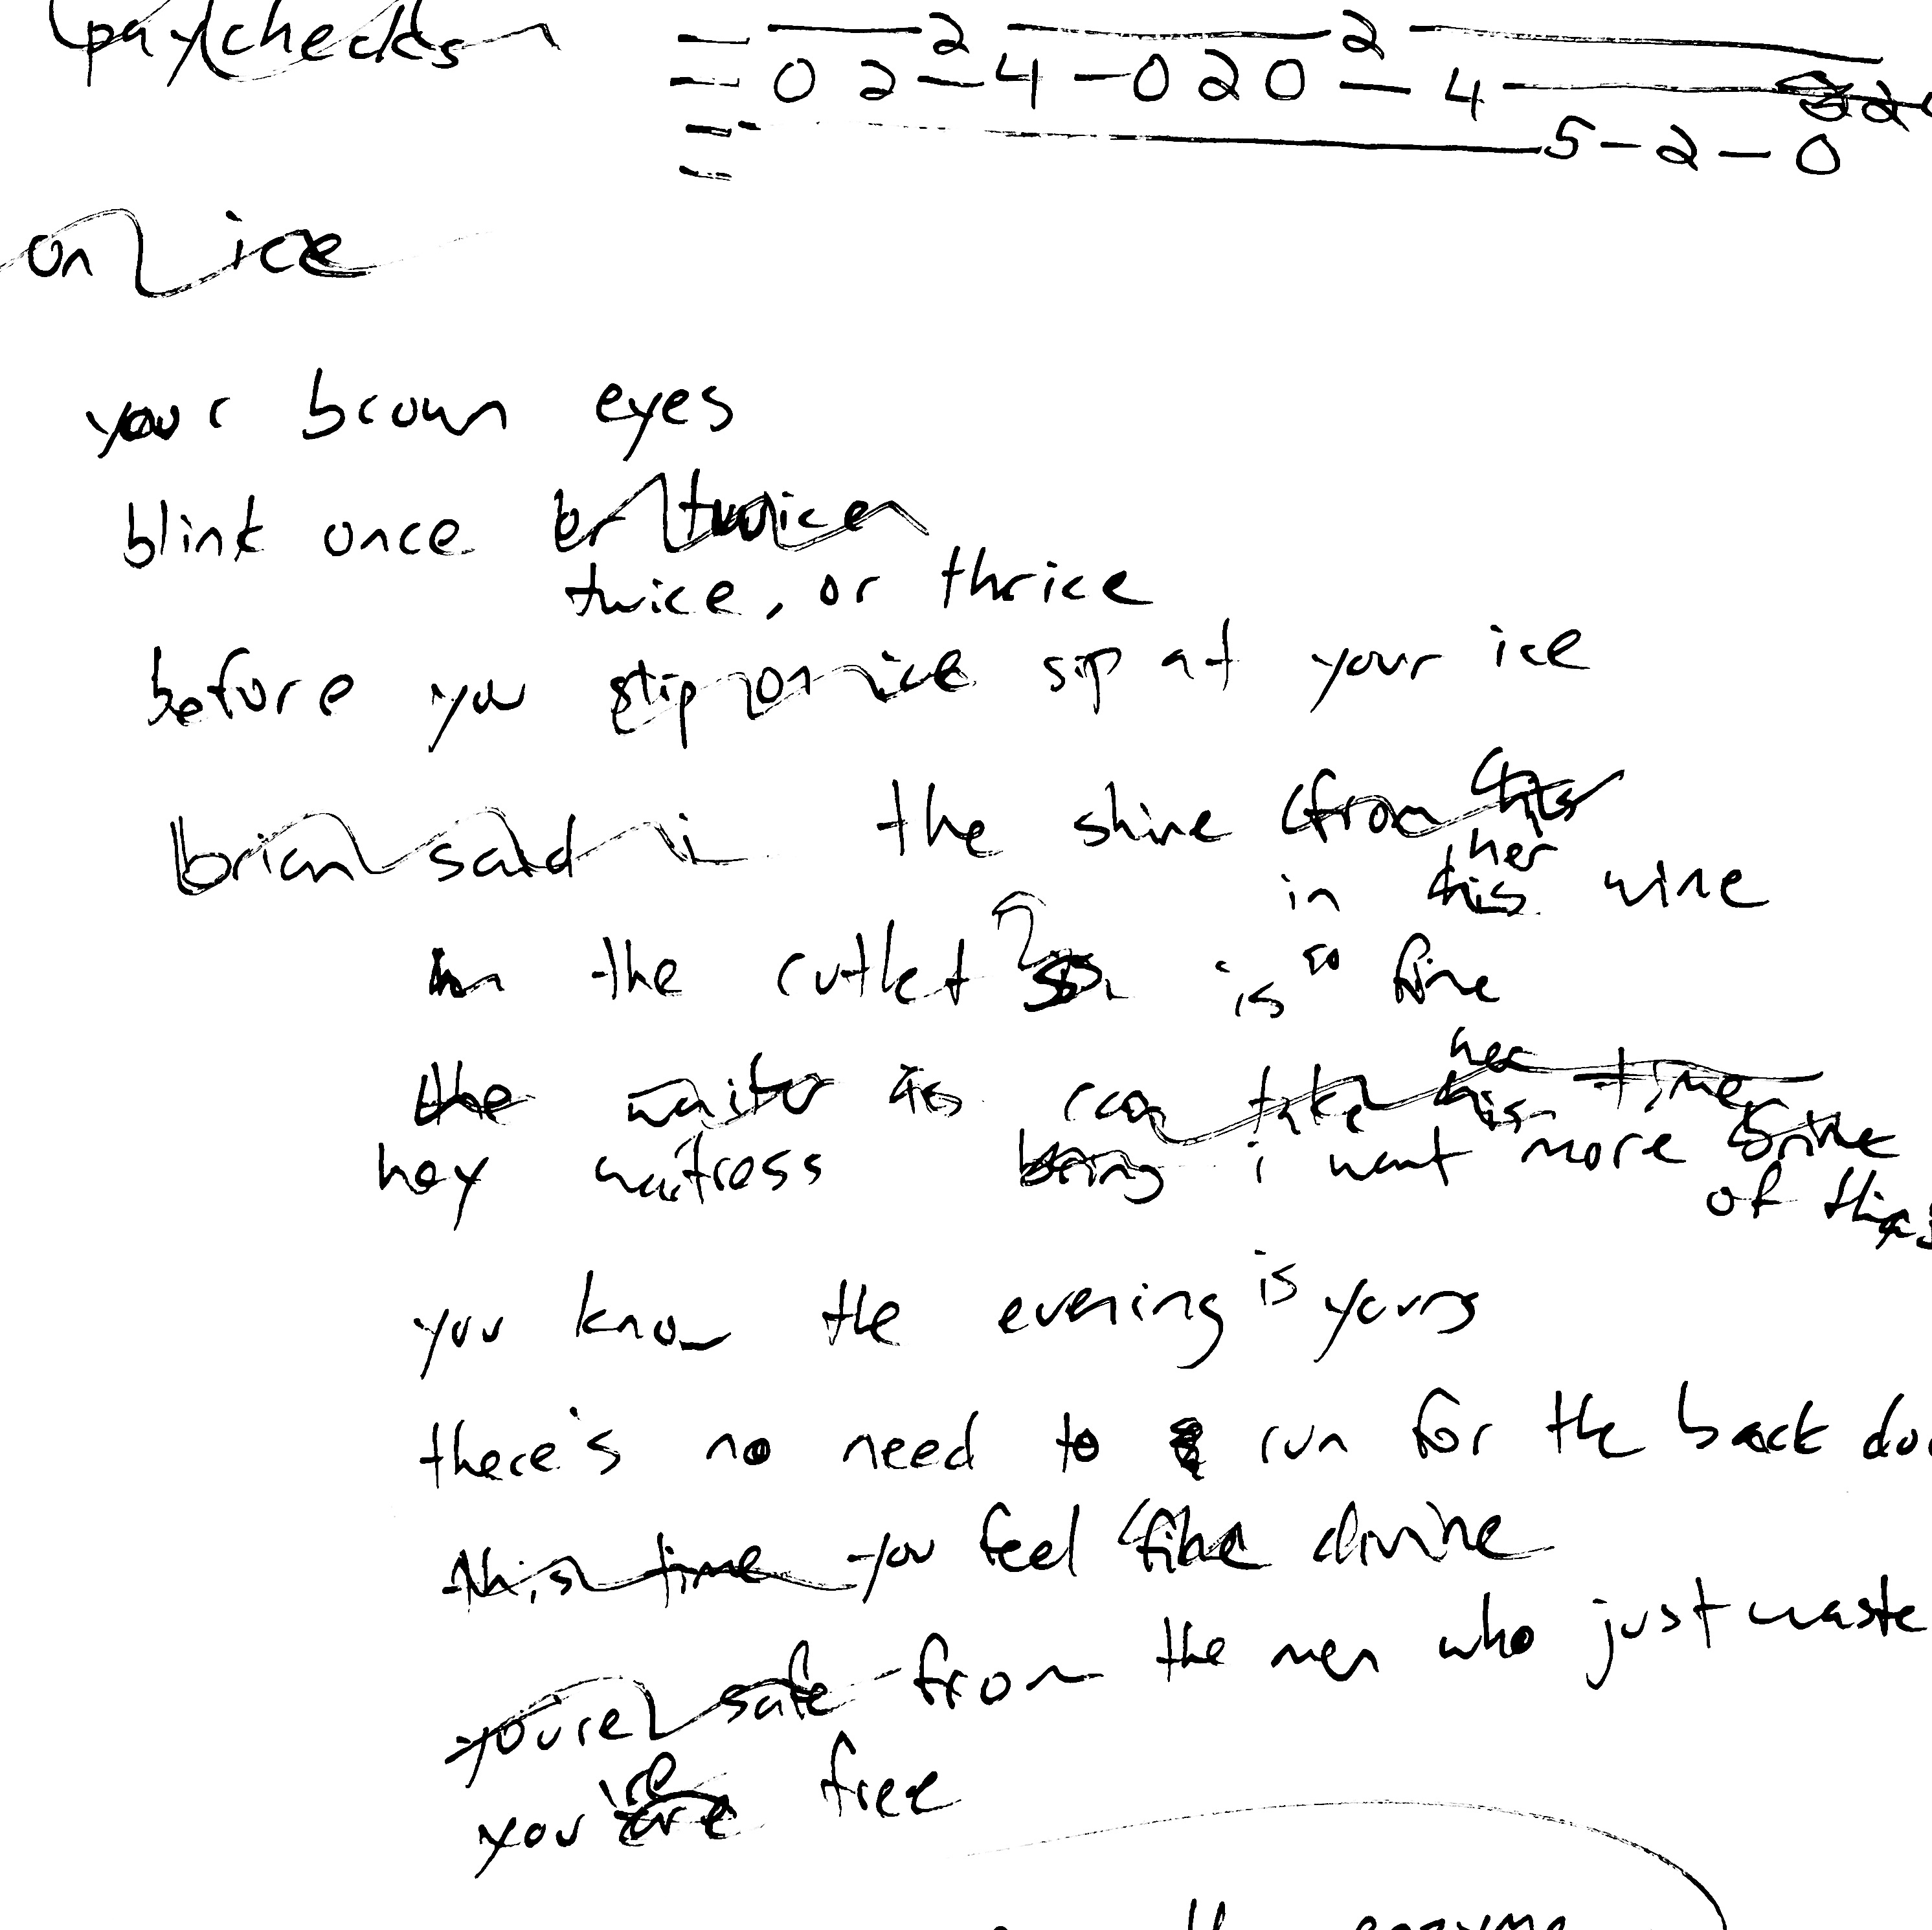 paychecks
2 2
0 2 - 4 - 0 2 0 - 4
5 - 2 - 0
on ice
your brown eyes
blink once or twice
twice, or thrice
before you slip on ice sip at your ice
brian said i the shine from this
her
in this wine
in the cutlet is so fine
her
the waiter is can take his time
hey waitress bring i want more
of this
you know the evening is yours
there's no need to run for the back
this time you feel fine divine
you're safe from the men who just waste
you're are free
enzyme